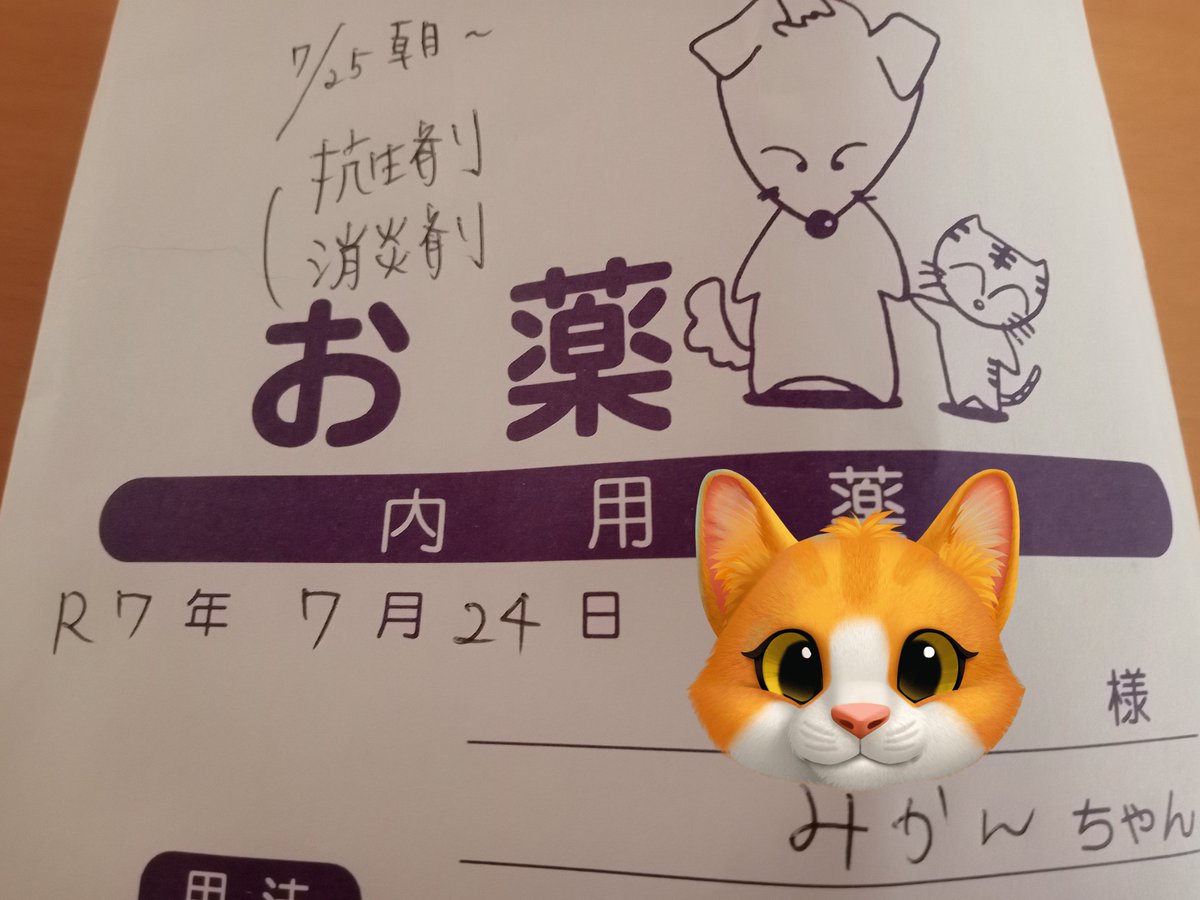 7/25 朝〜
抗生剤
消炎剤
お薬
内用薬
R7年 7月24日
様
みかんちゃん
用法